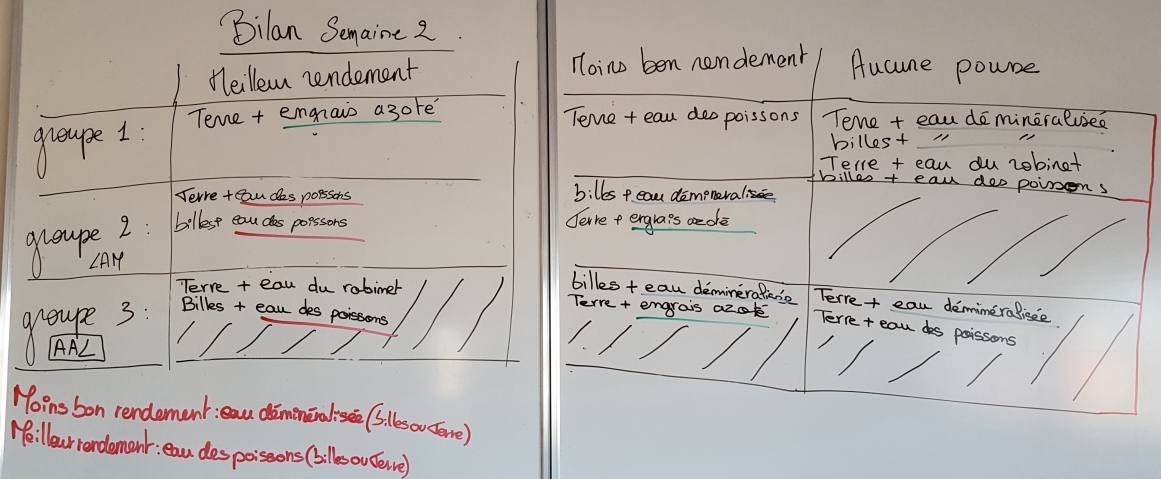 Bilan Semaine 2.
Meilleur rendement
Moins bon rendement
Aucune pousse
groupe 1 :
Terre + engrais azoté
Terre + eau des poissons
Terre + eau déminéralisée
billes + " "
Terre + eau du robinet
billes + eau des poissons
groupe 2 :
LAM
Terre + eau des poissons
billes + eau des poissons
billes + eau démineralisée
Terre + engrais azoté
groupe 3 :
AAL
Terre + eau du robinet
Billes + eau des poissons
billes + eau déminéralisée
Terre + engrais azoté
Terre + eau déminéralisée
Terre + eau des poissons
Moins bon rendement : eau déminéralisée (billes ou Terre)
Meilleur rendement : eau des poissons (billes ou Terre)